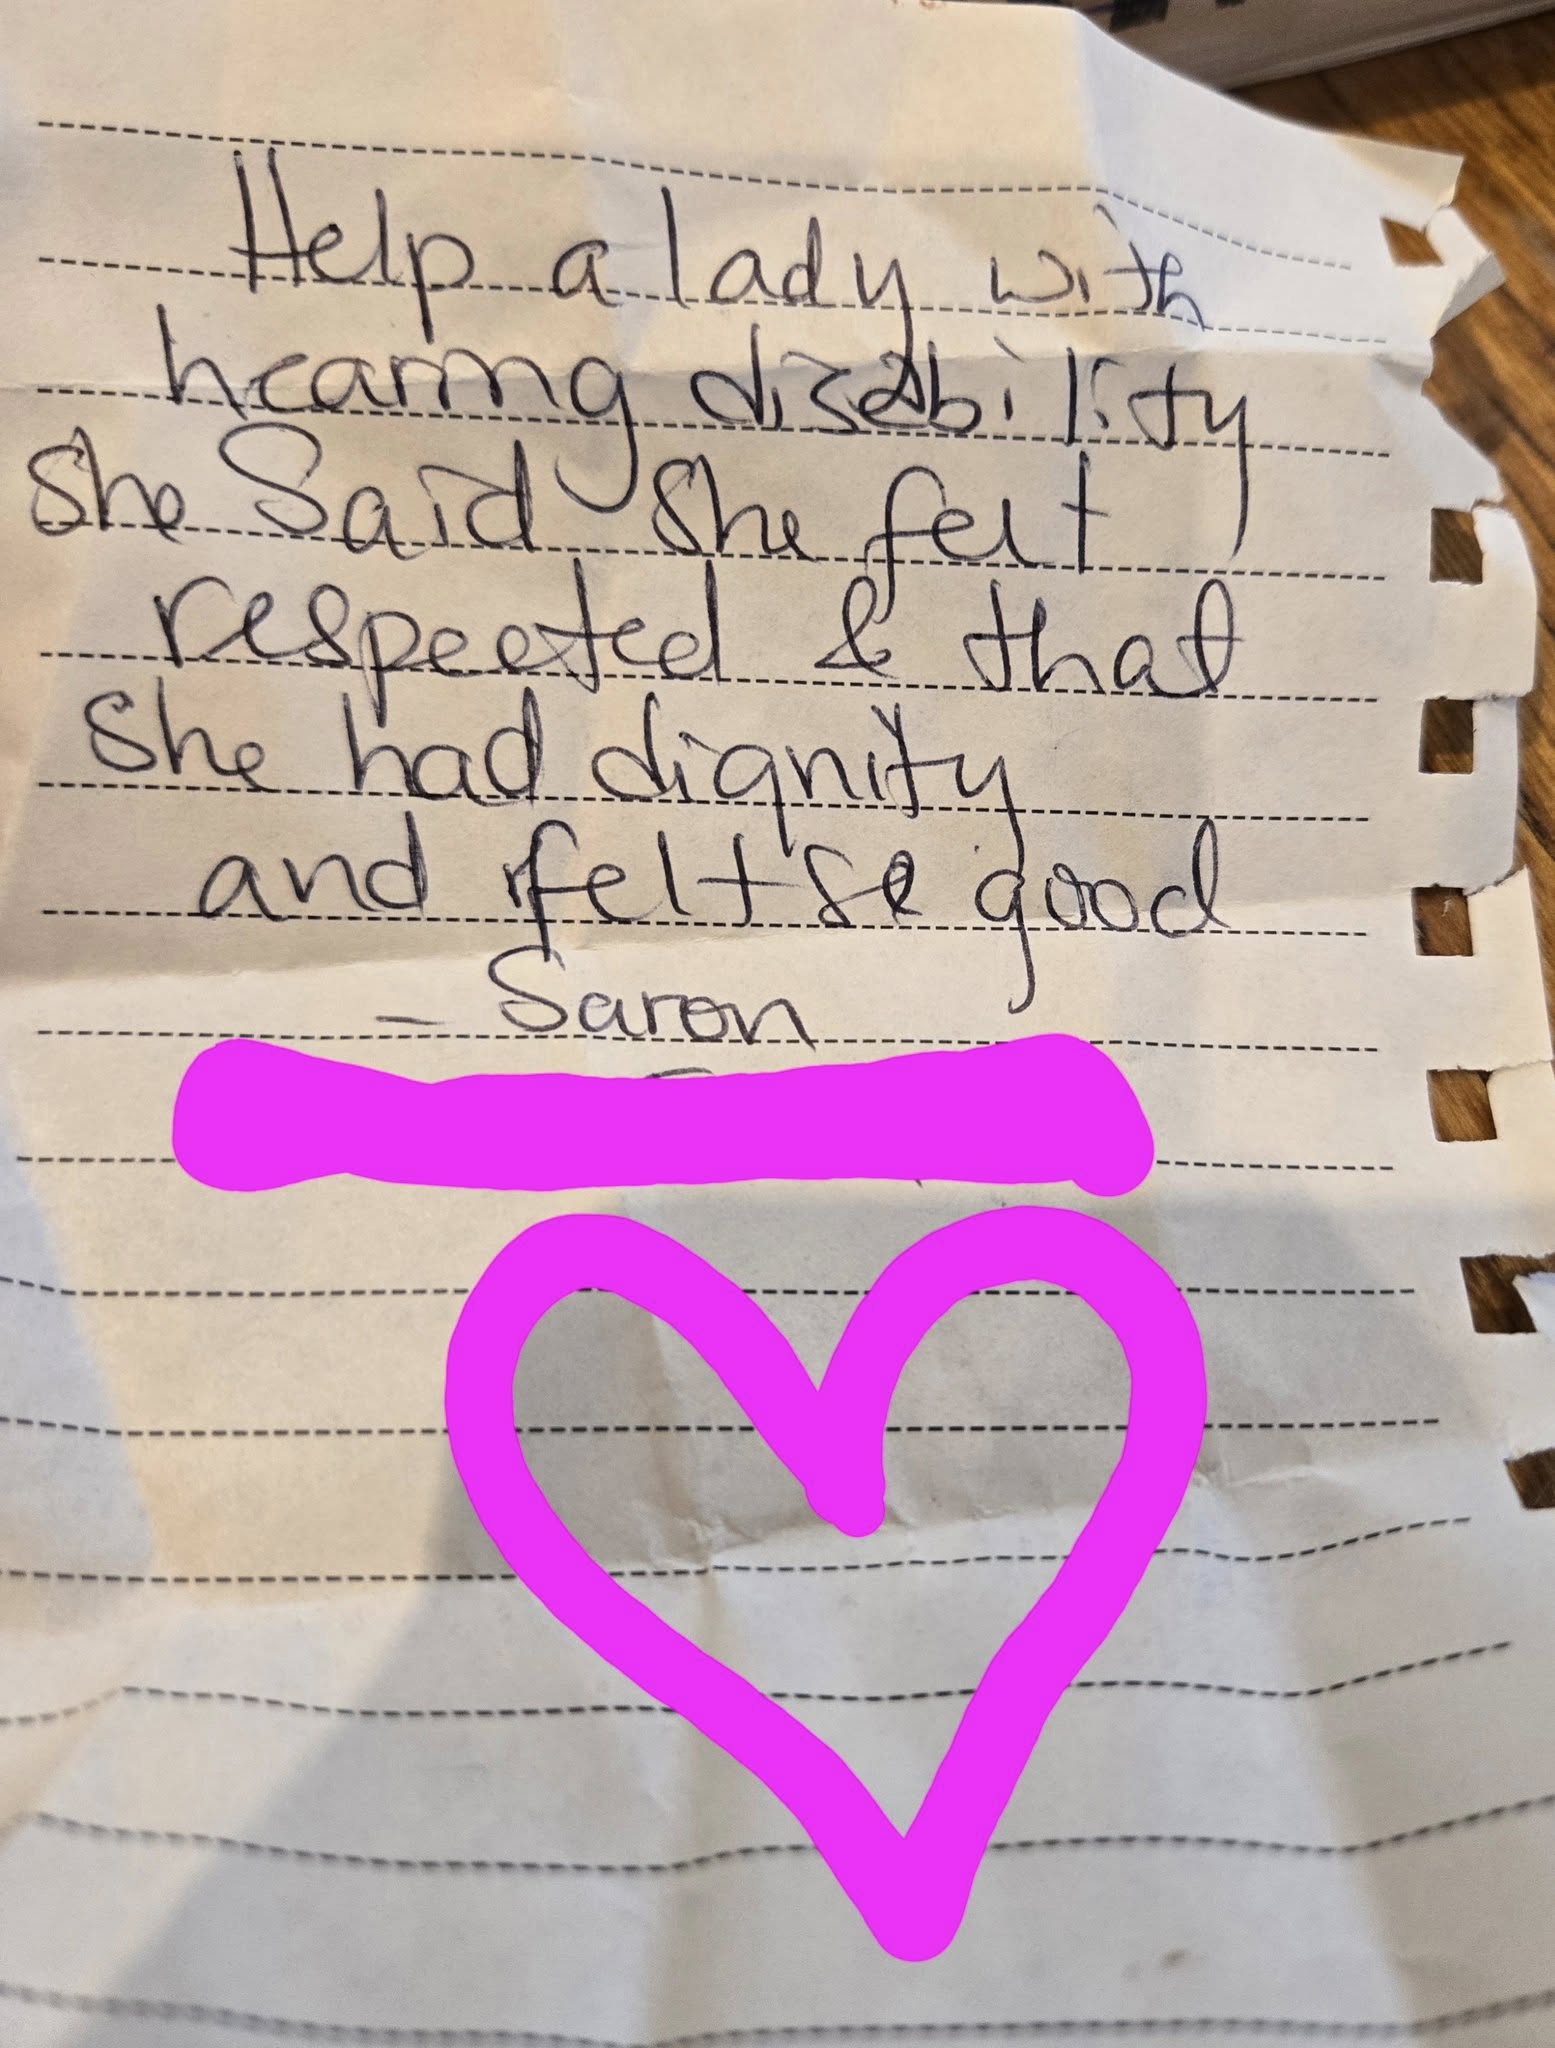 Help a lady with
hearing disability
She Said she felt
respected & that
She had dignity
and felt so good
- Saron